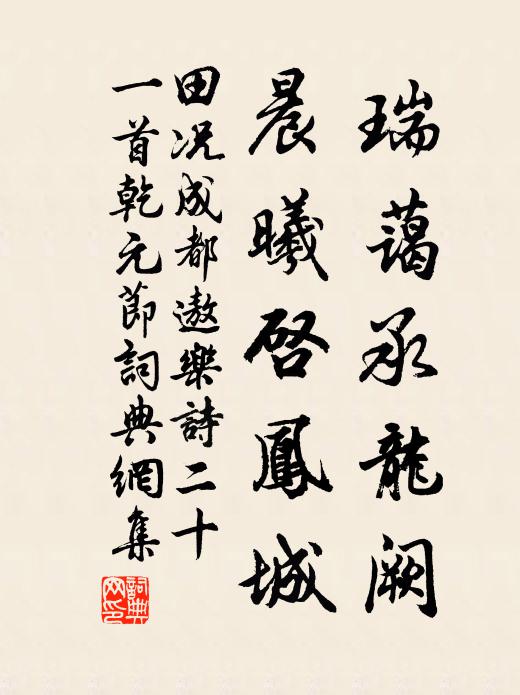 瑞藹承龍闕
晨曦啓鳳城
田况成都遨樂詩二十
一首乾元節詞典網集
詞典網印